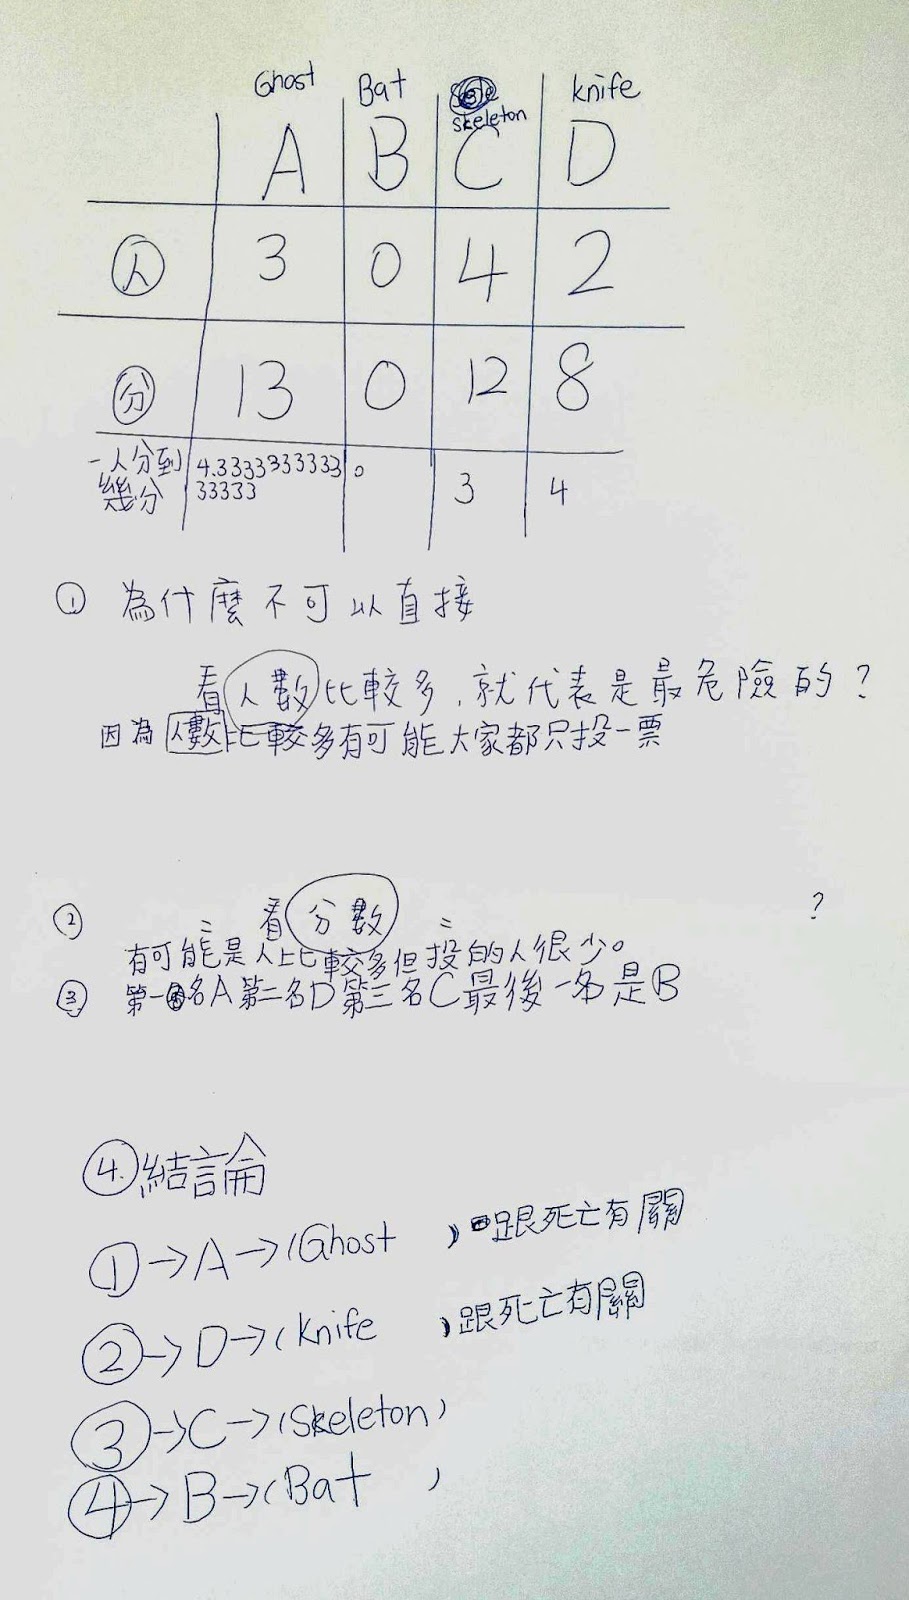 Ghost Bat skeleton knife
A B C D
人 3 0 4 2
分 13 0 12 8
一人分到 4.3333333333 0 3 4
幾分 33333
① 為什麼不可以直接
看人數比較多,就代表是最危險的?
因為人數比較多有可能大家都只投一票
② 〃 看分數 〃 ?
有可能是人比較多但投的人很少。
③ 第一名A第二名D第三名C最後一名是B
④.結論
①→A→(Ghost )跟死亡有關
②→D→(knife )跟死亡有關
③→C→(Skeleton)
④→B→(Bat )